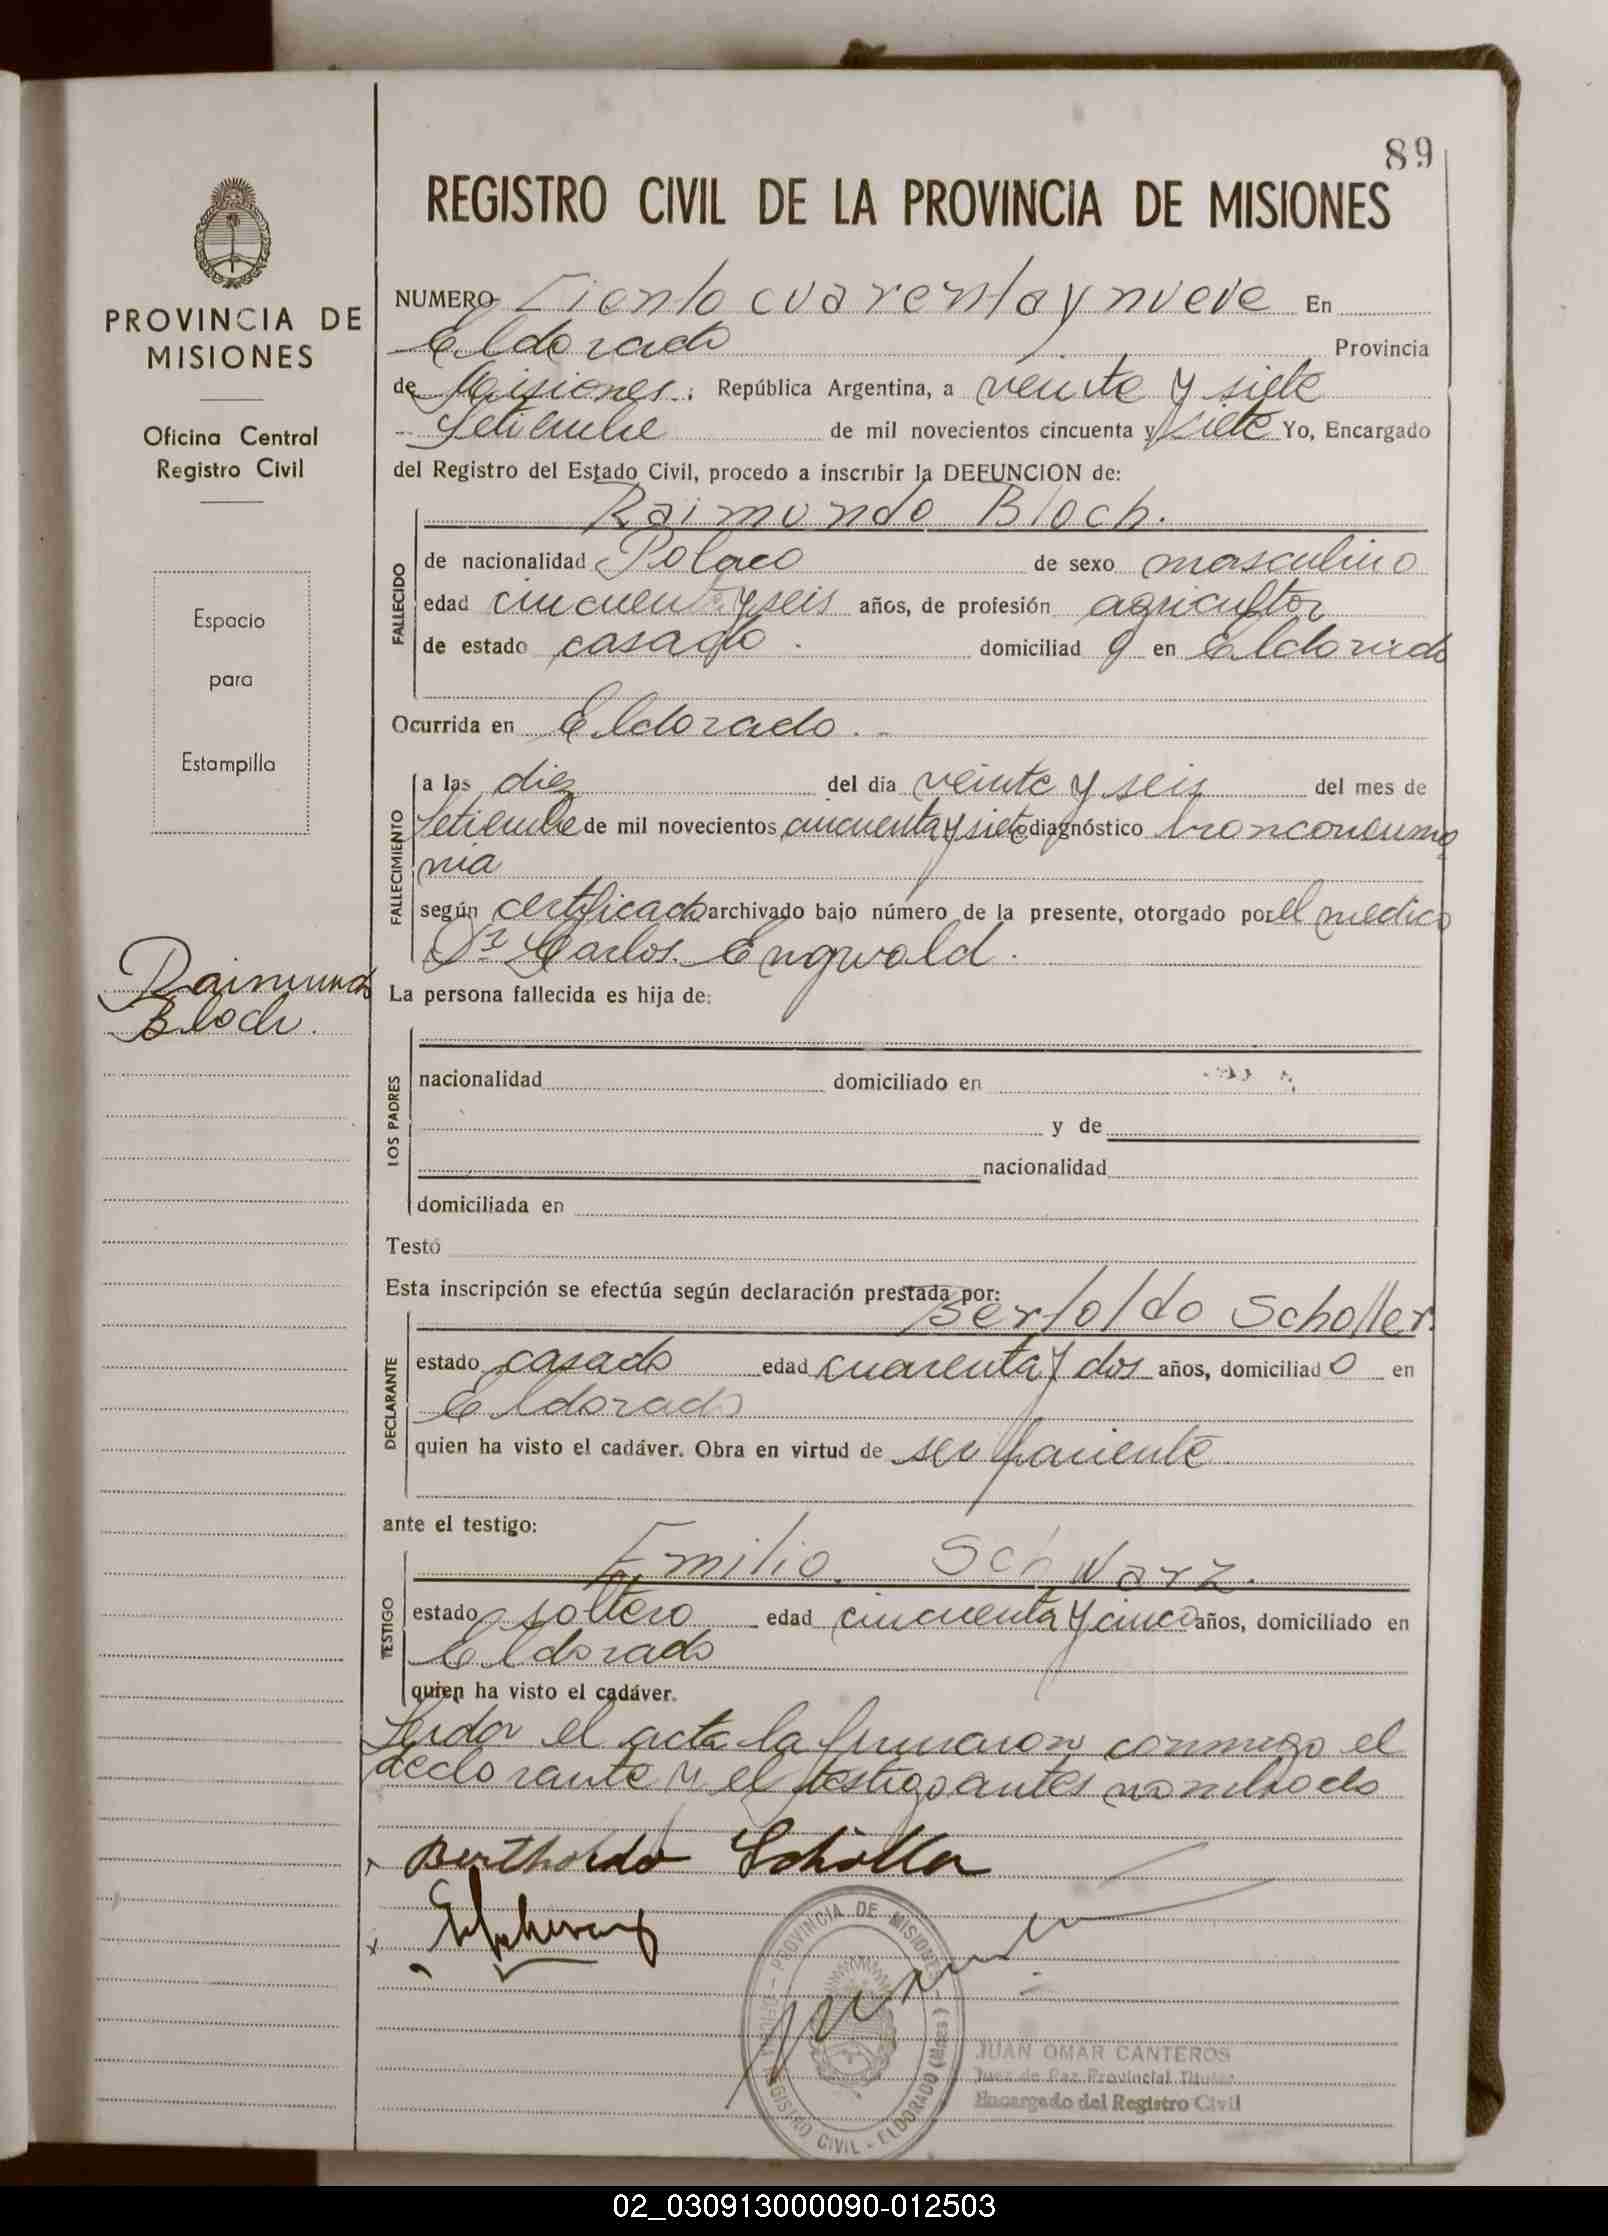 89
REGISTRO CIVIL DE LA PROVINCIA DE MISIONES
PROVINCIA DE
MISIONES
Oficina Central
Registro Civil
Espacio
para
Estampilla
Raimundo
Bloch.
NUMERO Ciento cuarenta y nueve En
Eldorado Provincia
de Misiones; República Argentina, a veinte y siete
Setiembre de mil novecientos cincuenta y siete Yo, Encargado
del Registro del Estado Civil, procedo a inscribir la DEFUNCION de:
Raimundo Bloch.
FALLECIDO
de nacionalidad Polaco de sexo masculino
edad cincuenta y seis años, de profesión agricultor
de estado casado. domiciliad o en Eldorado
Ocurrida en Eldorado.
FALLECIMIENTO
a las diez del día veinte y seis del mes de
Setiembre de mil novecientos cincuenta y siete diagnóstico bronconeumo
nia
según certificado archivado bajo número de la presente, otorgado por el medico
Dr Carlos Engwald.
La persona fallecida es hija de:
LOS PADRES
nacionalidad domiciliado en
y de
nacionalidad
domiciliada en
Testó
Esta inscripción se efectúa según declaración prestada por:
Bertoldo Scholler.
DECLARANTE
estado casado edad cuarenta y dos años, domiciliad o en
Eldorado
quien ha visto el cadáver. Obra en virtud de ser pariente
ante el testigo:
Emilio. Schwarz.
TESTIGO
estado soltero edad cincuenta y cinco años, domiciliado en
Eldorado
quien ha visto el cadáver.
Leida el acta la firmaron conmigo el
declarante y el testigo antes nombrado
Berthordo Schöller
PROVINCIA DE MISIONES
REGISTRO CIVIL - ELDORADO (Mnes)
JUAN OMAR CANTEROS
Juez de Paz Provincial Titular
Encargado del Registro Civil
02_030913000090-012503